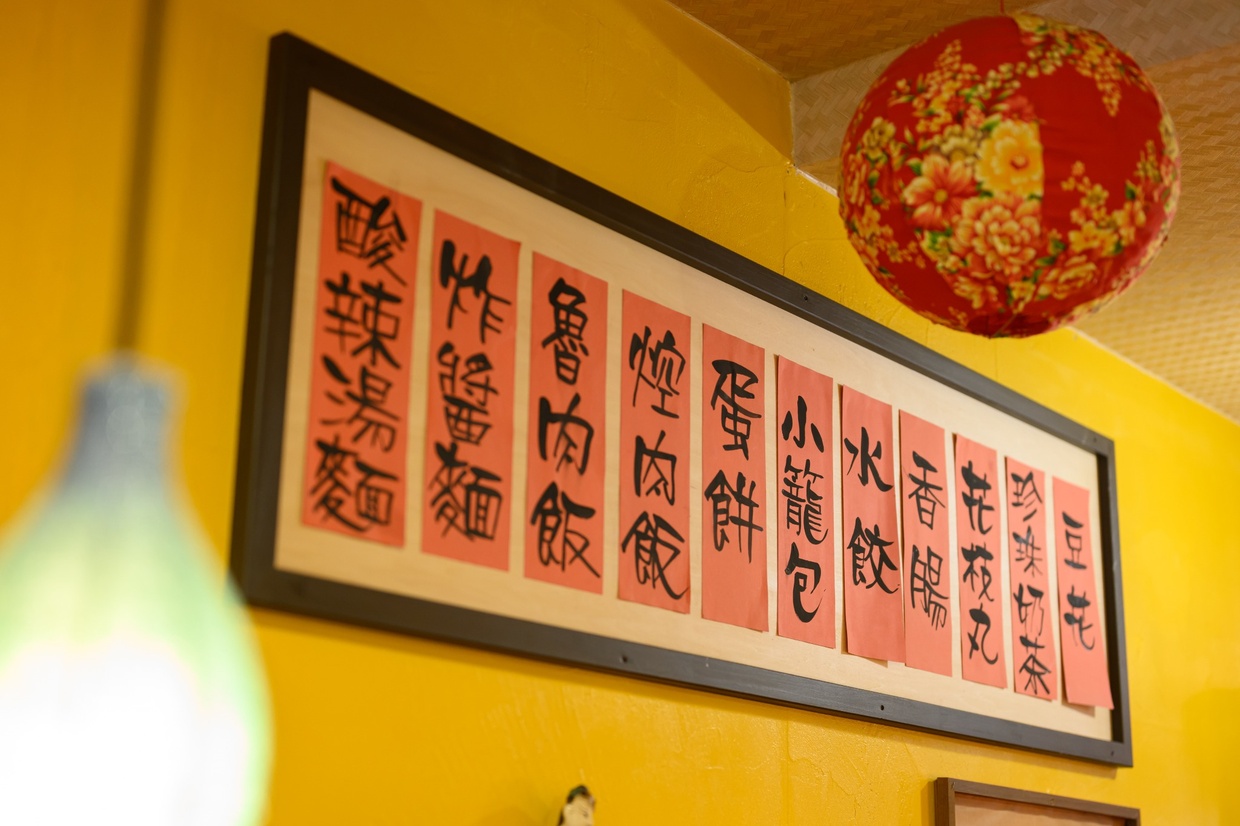 酸辣湯麵
炸醬麵
魯肉飯
焢肉飯
蛋餅
小籠包
水餃
香腸
花枝丸
珍珠奶茶
豆花